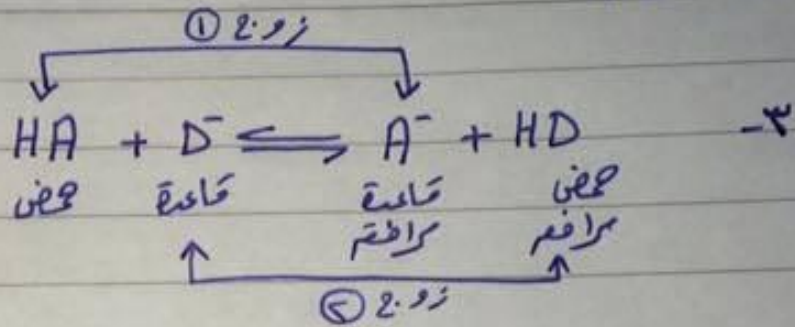 زوج ①
٣- HA + D⁻ ⇌ A⁻ + HD
حمض قاعدة قاعدة مرافقة حمض مرافق
زوج ②